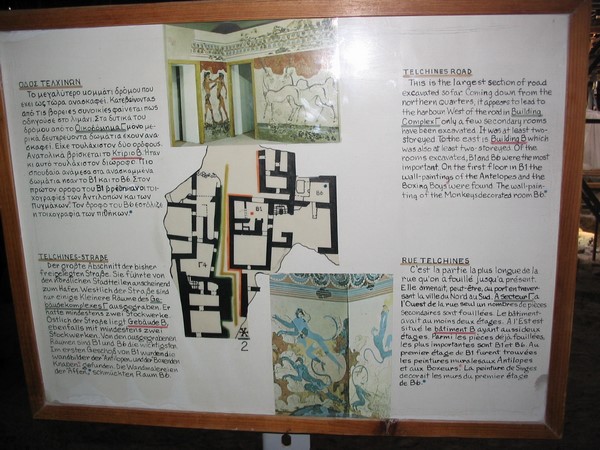 ΟΔΟΣ ΤΕΛΧΙΝΩΝ
Το μεγαλύτερο κομμάτι δρόμου που
έχει ως τώρα ανασκαφεί. Κατεβαίνοντας
από τις βόρειες συνοικίες φαίνεται πως
οδηγούσε στο λιμάνι. Στα δυτικά του
δρόμου από το Οικοδόμημα Γ μόνο με-
ρικά δευτερεύοντα δωμάτια έχουν ανα-
σκαφεί. Είχε τουλάχιστον δύο ορόφους.
Ανατολικά βρίσκεται το Κτίριο Β. Ήταν
κι αυτό τουλάχιστον διώροφο. Πιο
σπουδαία ανάμεσα στα ανασκαμμένα
δωμάτια ήταν το Β1 και το Β6. Στον
πρώτον όροφο του Β1 βρέθηκαν οι τοι-
χογραφίες των Αντιλοπών και των
Πυγμάχων. Τον όροφο του Β6 στόλιζε
η τοιχογραφία των πιθήκων.
TELCHINES ROAD
This is the largest section of road
excavated so far. Coming down from the
northern Quarters, it appears to lead to
the harbour. West of the road in Building
Complex Γ only a few secondary rooms
have been excavated. It was at least two-
storeyed. To the east is Building B which
was also at least two-storeyed. Of the
rooms excavated, B1 and B6 were the most
important. On the first floor in B1 the
wall-paintings of the Antelopes and the
Boxing Boys were found. The wall-pain-
ting of the Monkeys decorated room B6.
TELCHINES-STRAßE
Der größte Abschnitt der bisher
freigelegten Straße. Sie führte von
den nördlichen Stadtteilen anscheinend
zum Hafen. Westlich der Straße sind
nur einige kleinere Räume des Ge-
bäudekomplexes Γ ausgegraben. Er
hatte mindestens zwei Stockwerke.
Östlich der Straße liegt Gebäude B,
ebenfalls mit mindestens zwei
Stockwerken. Von den ausgegrabenen
Räumen sind B1 und B6 die wichtigsten.
Im ersten Geschoß von B1 wurden die
Wandbilder der "Antilopen" und der "Boxenden
Knaben" gefunden. Die Wandmalereien
der "Affen" schmückten Raum B6.
RUE TELCHINES
C'est la partie la plus longue de la
rue qu'on a fouillé jusqu'à présent.
Elle donnait, peut-être, au port en traver-
sant la ville du Nord au Sud. A secteur Γ à
l'Ouest de la rue seul un nombre de pièces
secondaires sont fouillées. Le bâtiment
avait au moins deux étages. A l'Est est
situé le bâtiment B ayant aussi deux
étages. Parmi les pièces déjà fouillées,
les plus importantes sont B1 et B6. Au
premier étage de B1 furent trouvées
les peintures murales aux Antilopes
et aux Boxeurs. La peinture de Singes
décorait les murs du premier étage
de B6.
B1
B6
Γ4
2